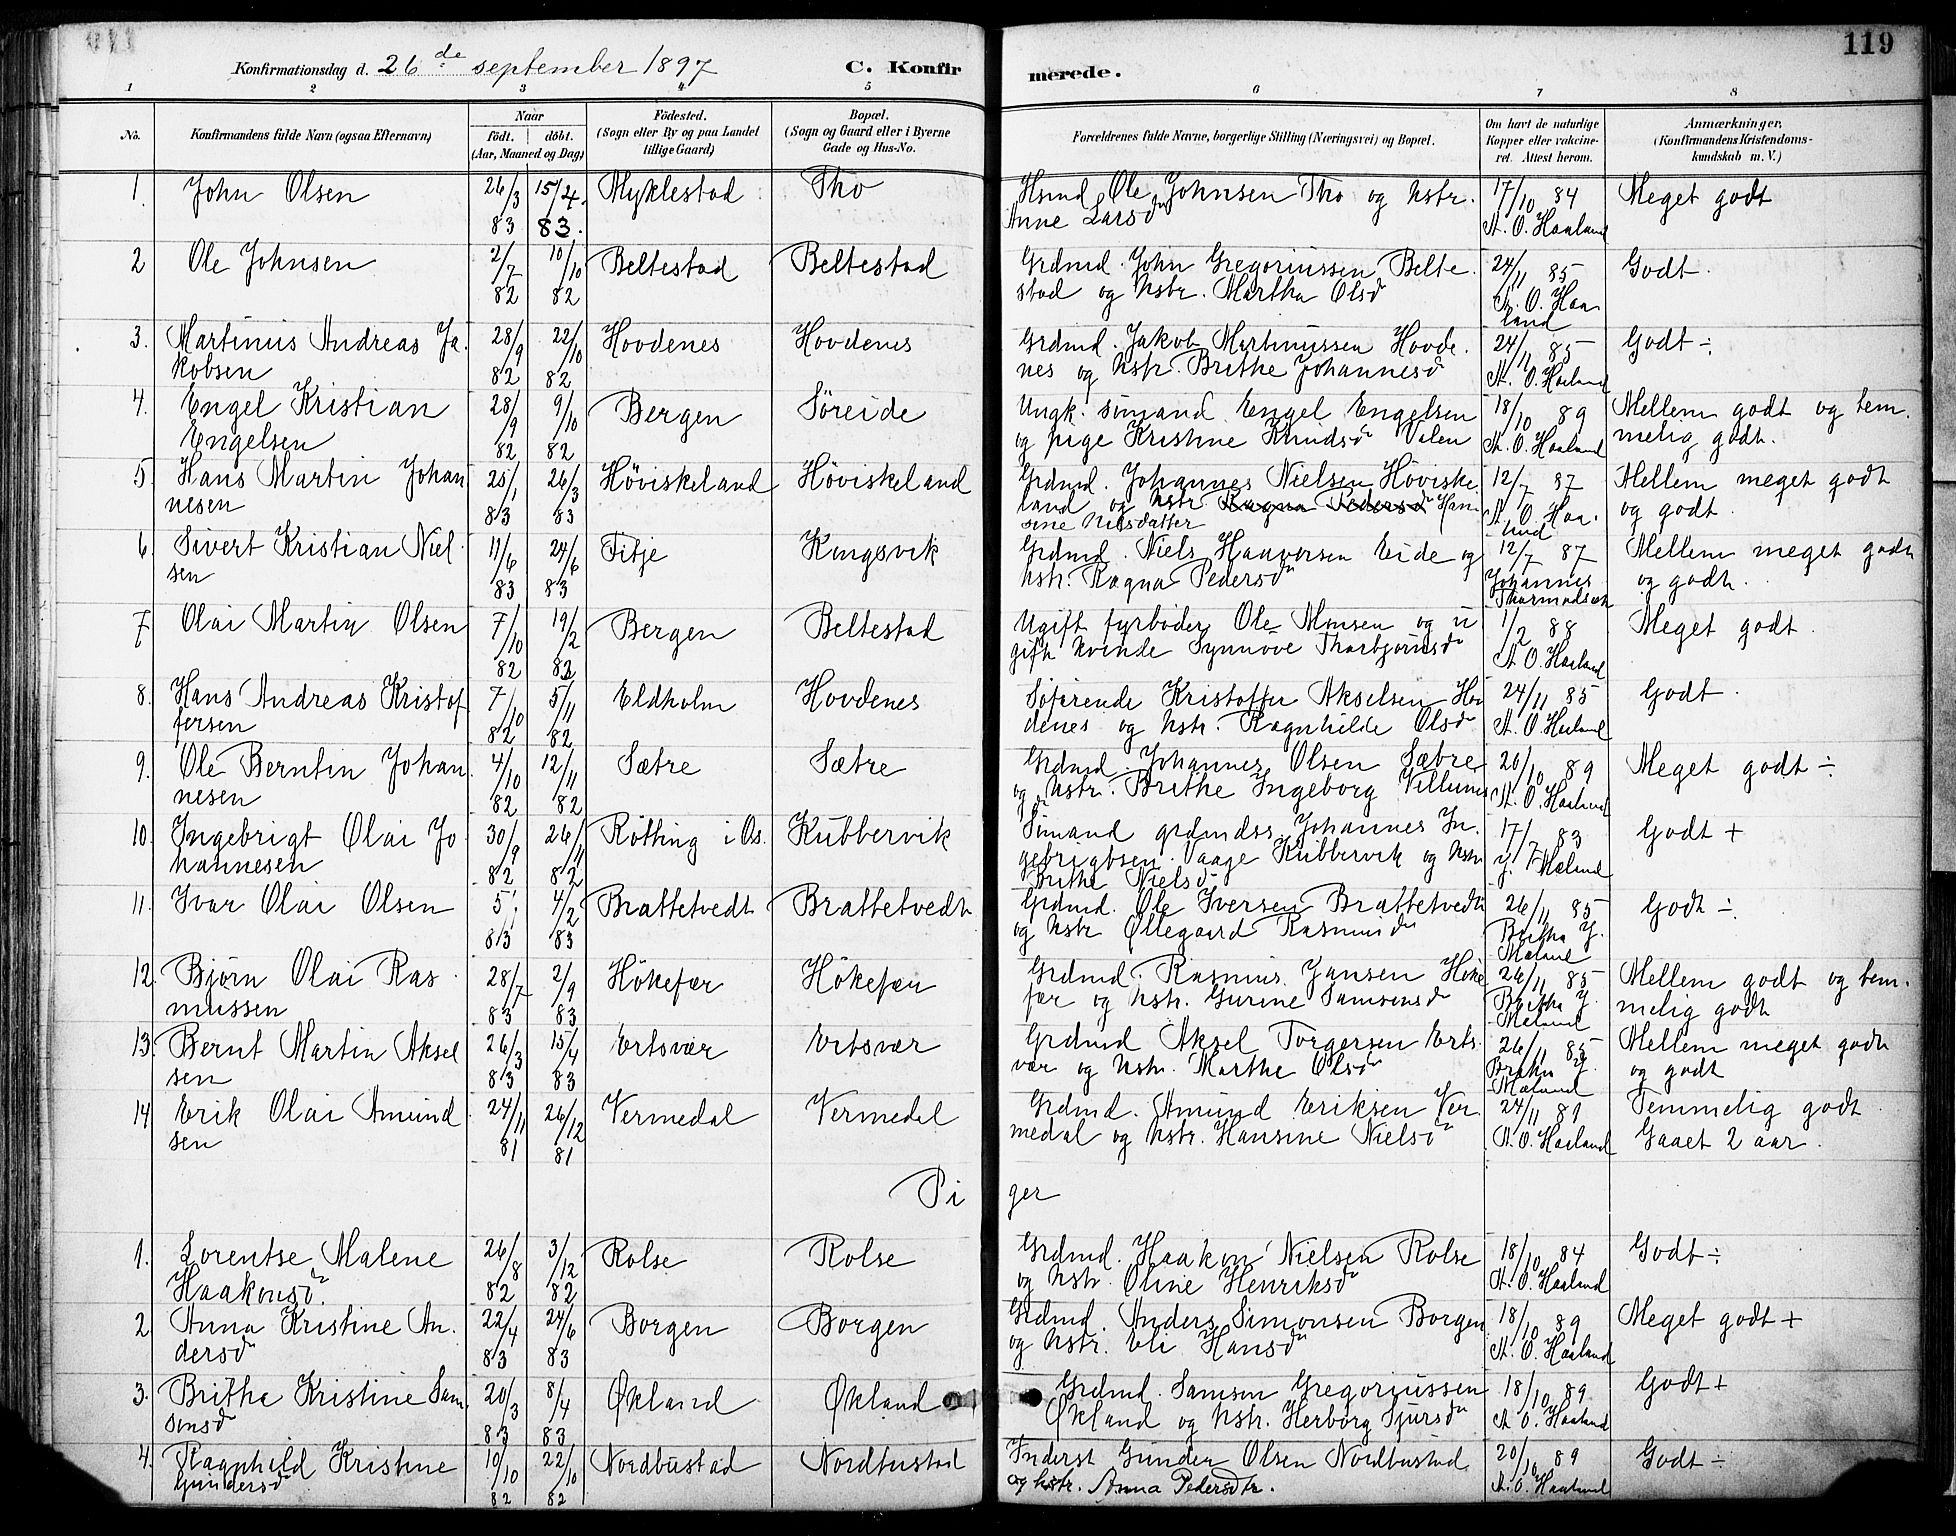 119
Konfirmationsdag d. 26de september 1897 C. Konfirmerede.
1 2 3 4 5 6 7 8
No. Konfirmandens fulde Navn (ogsaa Efternavn) Naar födt. döbt. (Aar, Maaned og Dag) Födested. (Sogn eller By og paa Landet tillige Gaard) Bopæl. (Sogn og Gaard eller i Byerne Gade og Hus-No. Forældrenes fulde Navne, borgerlige Stilling (Næringsvei) og Bopæl. Om havt de naturlige Kopper eller vakcineret. Attest herom. Anmærkninger, (Konfirmandens Kristendomskundskab m. V.)
1. John Olsen 26/3 83 15/4 83. Myklestad Tho Hsmd Ole Johnsen Tho og hstr. Anne Larsdr 17/10 84 A. O. Haaland Meget godt
2 Ole Johnsen 2/7 82 10/10 82 Beltestad Beltestad Grdmd. John Gregoriussen Beltestad og hstr. Martha Olsdr 24/11 85 A. O. Haaland Godt.
3. Martinus Andreas Jakobsen 28/9 82 22/10 82 Hovdenes Hovdenes Grdmd. Jakob Martinussen Hovdenes og hstr. Brithe Johannesdr 24/11 85 A. O. Haaland Godt ÷
4. Engel Kristian Engelsen 28/9 82 9/10 82 Bergen Søreide Ungk. sømand Engel Engelsen og pige Kristine Knudsdr Valen 18/10 89 A. O. Haaland Mellem godt og temmelig godt.
5. Hans Martin Johannesen 25/1 83 26/3 83 Höviskeland Höviskeland Grdmd. Johannes Nielsen Höviskeland og hstr. Ragna Pedersdr Hansine Nilsdatter 12/7 87 A. O. Haaland Mellem meget godt og godt.
6. Sivert Kristian Nielsen 11/6 83 24/6 83 Fitje Kongsvik Grdmd. Niels Haaversen Eide og hstr. Ragna Pedersdr 12/7 87 Johannes Thormodsæt Mellem meget godt og godt.
7 Olai Martin Olsen 7/10 82 19/2 83 Bergen Beltestad Ugift fyrböder Ole Monsen og ugift kvinde Synnöve Thorbjörnsdr 1/2 88 A. O. Haaland Meget godt.
8. Hans Andreas Kristoffersen 7/10 82 5/11 82 Eldholm Hovdenes Søfarende Kristoffer Akselsen Hovdenes og hstr. Ragnhilde Olsdr 24/11 85 A. O. Haaland Godt.
9. Ole Berntin Johannesen 4/10 82 12/11 82 Sætre Sætre Grdmd. Johannes Olsen Sætre og hstr. Brithe Ingeborg Villumsdr 20/10 89 A. O. Haaland Meget godt ÷
10. Ingebrigt Olai Johannesen 30/9 82 26/11 82 Rötting i Os. Kubbervik Sømand grdmdss. Johannes Ingebrigtsen Vaage Kubbervik og hstr. Brithe Nielsdr 17/7 83 J. Mæland Godt +
11. Ivar Olai Olsen 5/1 83 4/2 83 Brattetvedt Brattetvedt Grdmd. Ole Iversen Brattetvedt og hstr Ollegaard Rasmusdr 26/11 85 Britha J. Mæland Godt ÷
12. Bjørn Olai Rasmussen 28/7 83 2/9 83 Hökefær Hökefær Grdmd. Rasmus Jansen Hökefær og hstr. Gurine Samsonsdr 26/11 85 Britha J. Mæland Mellem godt og temmelig godt
13. Bernt Martin Akselsen 26/3 83 15/4 83 Ertsvær Ertsvær Grdmd Aksel Torgersen Ertsvær og hstr. Marthe Olsdr 26/11 85 Britha J. Mæland Mellem meget godt og godt
14 Erik Olai Amundsen 24/11 81 26/12 81 Vermedal Vermedal Grdmd. Amund Eriksen Vermedal og hstr. Hansine Nielsdr 24/11 89 A. O. Haaland Temmelig godt. Gaaet 2 aar.
Piger
1. Lorentse Malene Haakonsdr. 26/8 82 3/12 82 Rolse Rolse Grdmd. Haakon Nielsen Rolse og hstr. Oline Henriksdr 18/10 84 A. O. Haaland Godt ÷
2 Anna Kristine Andersdr 22/4 83 24/6 83 Borgen Borgen Grdmd. Anders Simonsen Borgen og hstr. Eli Hansdr 18/10 89 A. O. Haaland Meget godt +
3. Britha Kristine Samsonsdr 20/3 83 8/4 83 Økland Økland Grdmd. Samson Gregoriussen Økland og hstr. Herborg Sjursdr 18/10 89 A. O. Haaland Godt +
4. Ragnhild Kristine Gundersdr 10/10 82 22/10 82 Nordbustad Nordbustad Inderst Gunder Olsen Nordbustad og hstr. Anna Pedersdtr. 20/10 89 A. O. Haaland Godt ÷